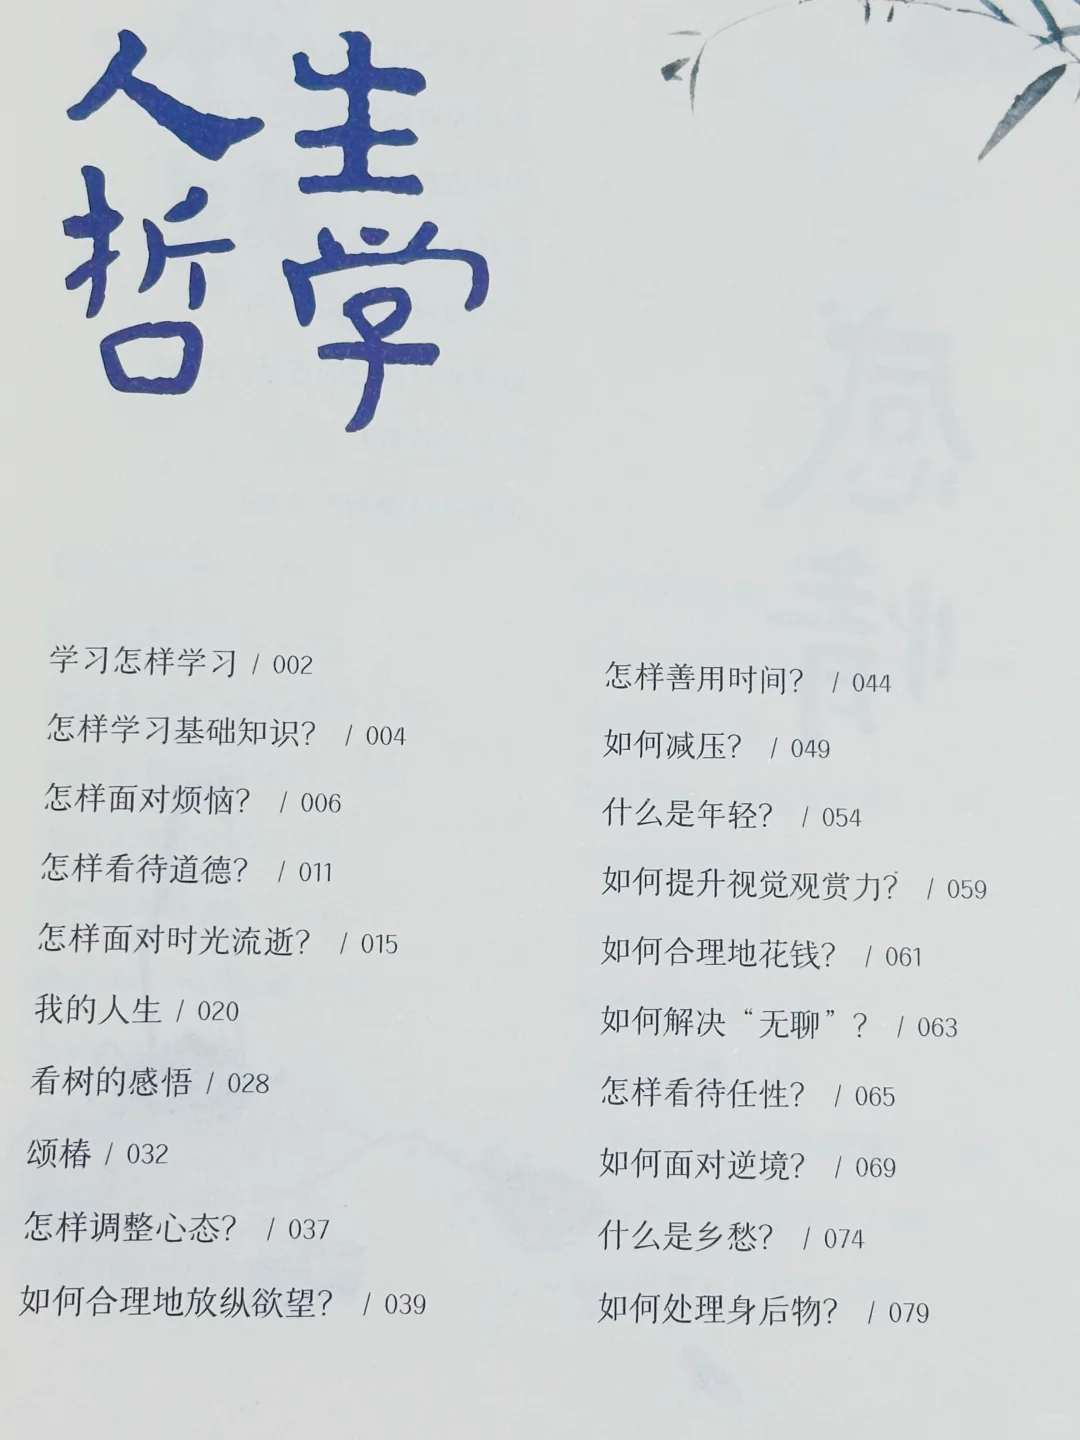 人生
哲学
学习怎样学习 / 002
怎样学习基础知识？ / 004
怎样面对烦恼？ / 006
怎样看待道德？ / 011
怎样面对时光流逝？ / 015
我的人生 / 020
看树的感悟 / 028
颂椿 / 032
怎样调整心态？ / 037
如何合理地放纵欲望？ / 039
怎样善用时间？ / 044
如何减压？ / 049
什么是年轻？ / 054
如何提升视觉观赏力？ / 059
如何合理地花钱？ / 061
如何解决“无聊”？ / 063
怎样看待任性？ / 065
如何面对逆境？ / 069
什么是乡愁？ / 074
如何处理身后物？ / 079
感情